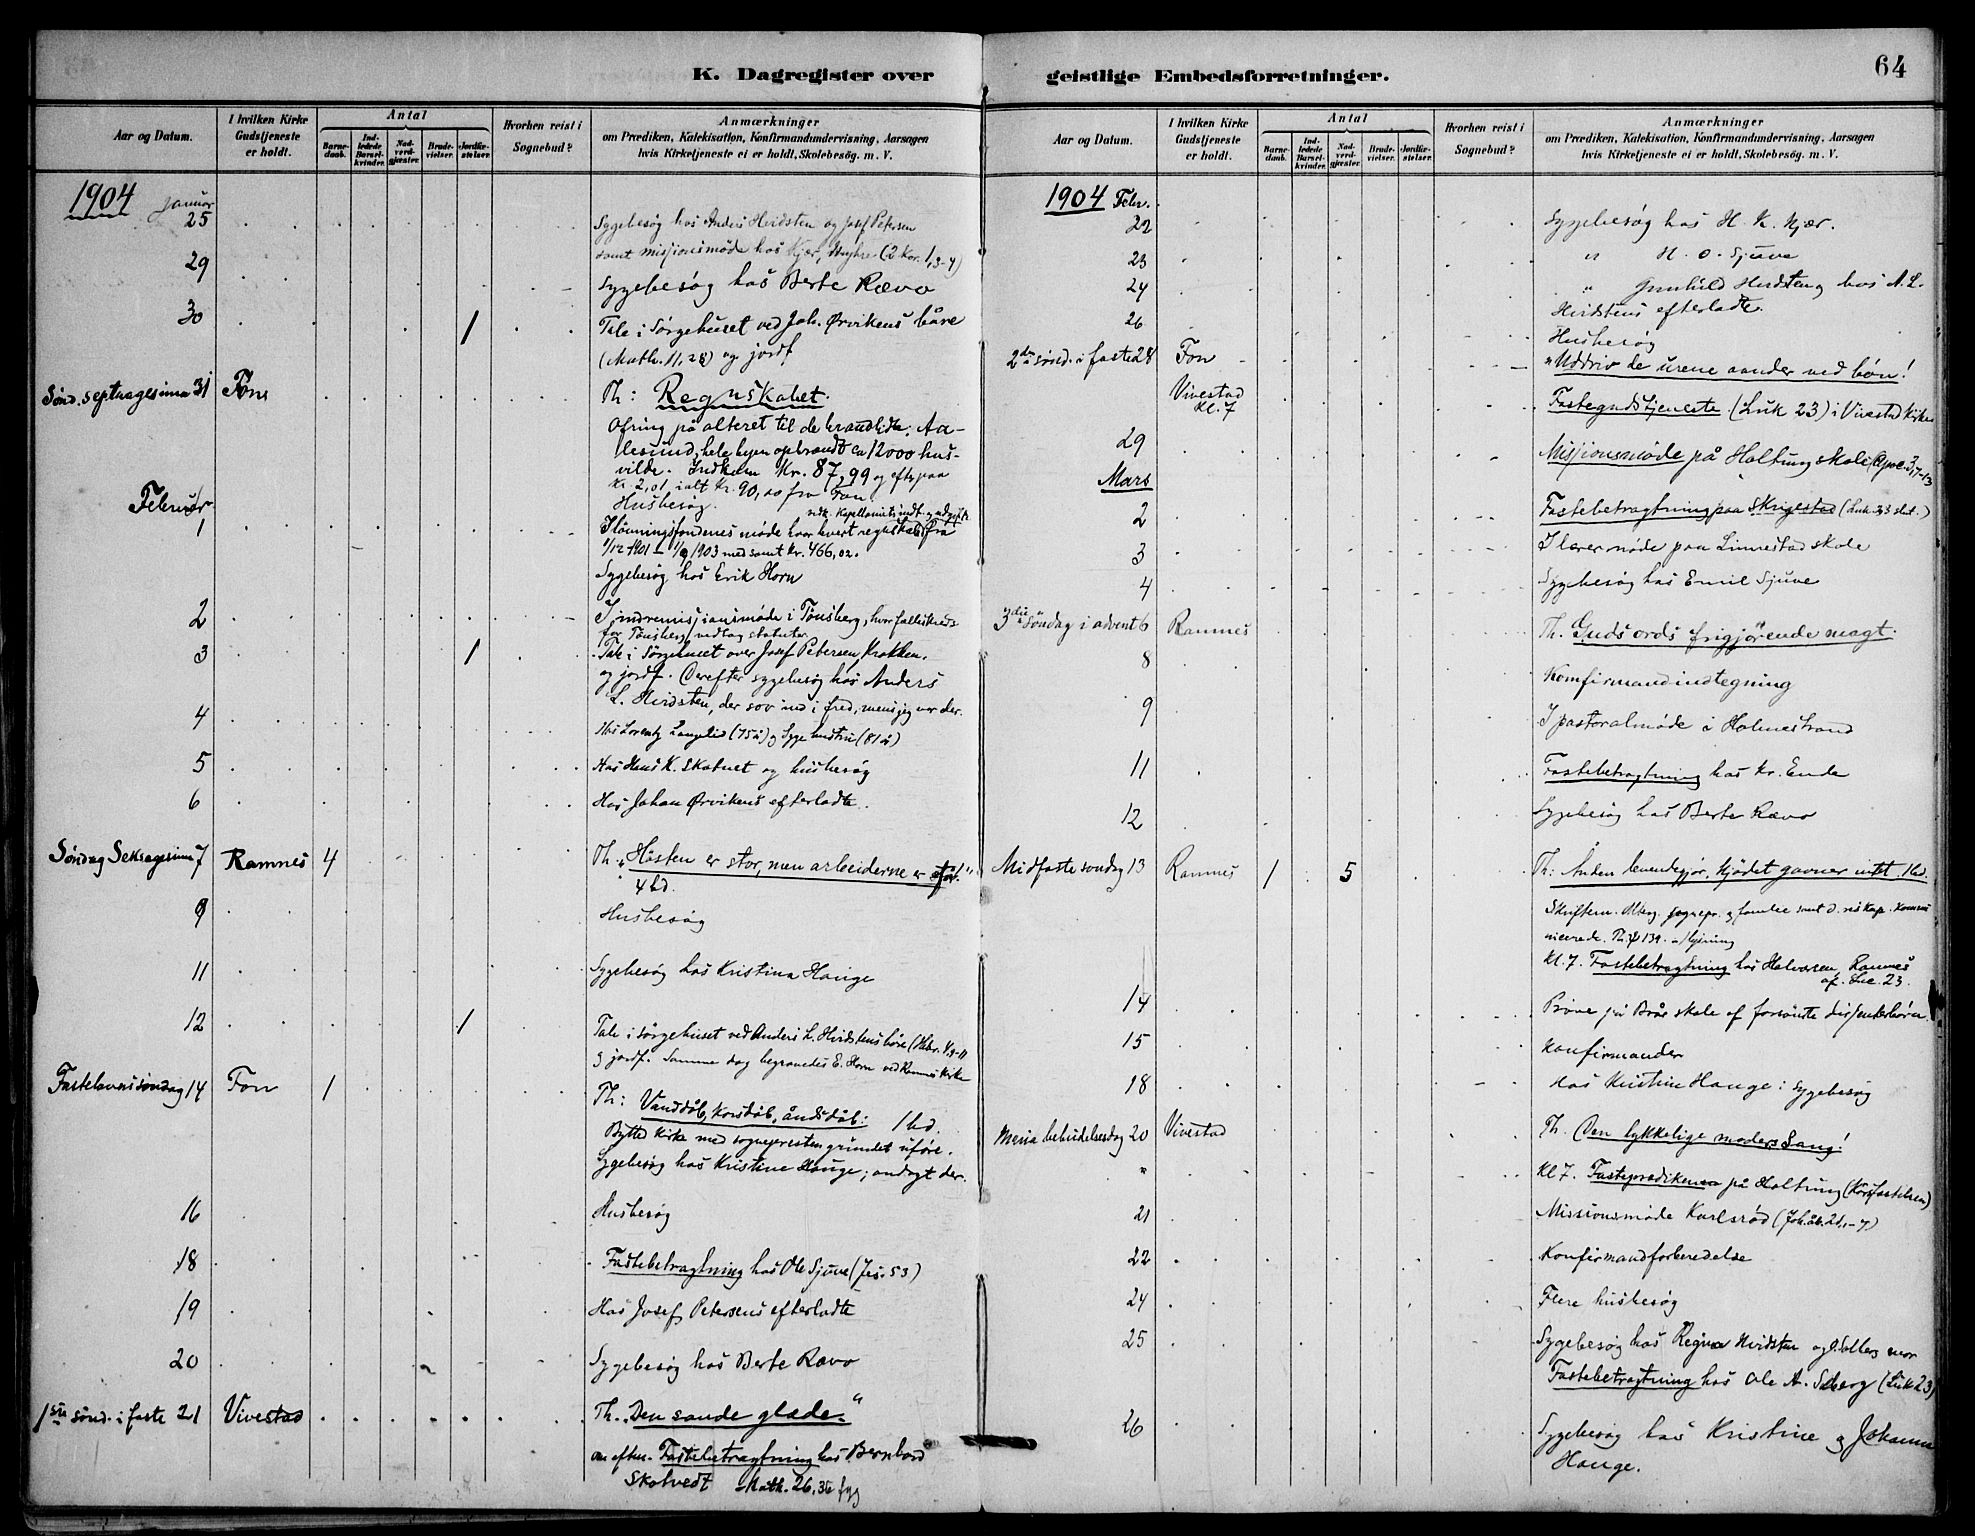 64
K. Dagregister over geistlige Embedsforretninger.
Aar og Datum.
I hvilken Kirke Gudstjeneste er holdt.
Antal
Barne-daab.
Ind-ledede Barsel-kvinder.
Nad-verd-gjæster.
Brude-vielser.
Jordfæ-stelser.
Hvorhen reist i Sognebud?
Anmærkninger
om Prædiken, Katekisation, Konfirmandundervisning, Aarsagen
hvis Kirketjeneste ei er holdt, Skolebesög. m. V.
1904 januar
25 Sygebesøg hos Anders Hvidsten og Josef Petersen
samt missionsmøde hos Kjær, (2 Kor. 1,3-4)
29 Sygebesøg hos Berte Rævo
30 1 Tale i Sørgehuset ved Joh. Ørvikens båre
(Math. 11,28) og jordf
Sønd. septuagesima 31 Fon Th: Regnskabet.
Ofring på alteret til de brandlidte, Aa-
lesund, hele byen opbrandt ca 12000 hus-
vilde. Indkom Kr. 87,99 og efterpaa
kr. 2,01 ialt kr. 90,00 fra Fon
Husbesøg.
Februar
1 vedk. Kapellaniets indt. og udgift.
I lønningsfondenes møde har hvert regnskab fra
1/12 1901 – 1/9 1903 med samt kr. 466,02.
Sygebesøg hos Erik Horn
2 I indremissionsmøde i Tønsberg, hvor
for Tønsberg vedtog statuter
3 1 Tale i Sørgehuset over Josef Petersen Krakken.
og jordf. Derefter sygebesøg hos Anders
L. Hvidsten, der sov ind i fred, mens jeg var der.
4 Hos Lorentz Langelid (75 år) og Syge hustru (81 år)
5 Hos Hans K. Skatvet og husbesøg
6 Hos Johan Ørvikens efterladte.
Søndag Seksagesima 7 Ramnes 4 Th. "Høsten er stor, men arbeiderne er få."
4 bd.
9 Husbesøg
11 Sygebesøg hos Kristina Hauge
12 1 Tale i sørgehuset ved Anders L. Hvidstens båre (Hebr. 4,9-11
og jordf. Samme dag begravedes E. Horn ved Ramnes Kirke
Fastelavnssøndag 14 Fon 1 Th: Vanddåb, korsdåb, åndsdåb: 1 bd.
Bytted kirke med sognepresten grundet uføre.
Sygebesøg hos Kristine Hauge; andagt der.
16 Husbesøg
18 Fastebetragtning hos Ole Sjuve (Jes. 53)
19 Hos Josef Petersens efterladte
20 Sygebesøg hos Berte Rævo
1ste sønd. i faste 21 Vivestad Th. "Den sande glæde."
om eften. Fastebetragtning hos Bernhard
Skatvedt Math. 26,36 fyg
Aar og Datum.
I hvilken Kirke Gudstjeneste er holdt.
Antal
Barne-daab.
Ind-ledede Barsel-kvinder.
Nad-verd-gjæster.
Brude-vielser.
Jordfæ-stelser.
Hvorhen reist i Sognebud?
Anmærkninger
om Prædiken, Katekisation, Konfirmandundervisning, Aarsagen
hvis Kirketjeneste ei er holdt, Skolebesög. m. V.
1904 Febr.
22 Sygebesøg hos H. K. Kjær.
23 " H. O. Sjuve
24 " Gunhild Hvidsten og hos A. L.
Hvidstens efterladte.
26 Husbesøg
2den sønd. i faste 28 Fon "Uddriv de urene aander ved bøn!
Vivestad
Kl. 7 Fastegudstjeneste (Luk 23) i Vivestad kirke
29 Missionsmøde på Holtung skole (Apoc. 3,7-13
Mars
2 Fastebetragtning paa Skrigestad (Luk. 23 slut.)
3 I lærermøde paa Linnestad skole
4 Sygebesøg hos Emil Sjuve
3die søndag i advent 6 Ramnes Th. Guds ords frigjørende magt.
8 Komfirmandindtegning
9 I pastoralmøde i Holmestrand
11 Fastebetragtning hos Kr. Enda
12 Sygebesøg hos Berte Rævo
Midfaste søndag 13 Ramnes 1 5 Th: Ånden levendegjør, kjødet gavner intet. 1 bd.
Skriftem. sognepr. og familie samt d. res Kap. kommu
nicerede. Th ψ 139.
Kl. 7. Fastebetragtning hos Halvorsen, Ramnes
af Luc. 23.
14 Prøve på Brås skole af forsømte dissenterbørn
15 Konfirmander
18 Hos Kristine Hauge i sygebesøg
Maria bebudelsesdag 20 Vivestad Th. Den lykkelige moders Sang!
" Kl 7. Fasteprædiken på Holtung (Korsfæstelsen)
21 Missionsmøde Karlsrød (Joh. åb. 21,1-7)
22 Konfirmandforberedelse
24 Flere husbesøg
25 Sygebesøg hos Regna Hvidsten og Solberg mor
Fastebetragtning hos Ole A. Solberg (Luk 23)
26 Sygebesøg hos Kristine og Johanne
Hauge.